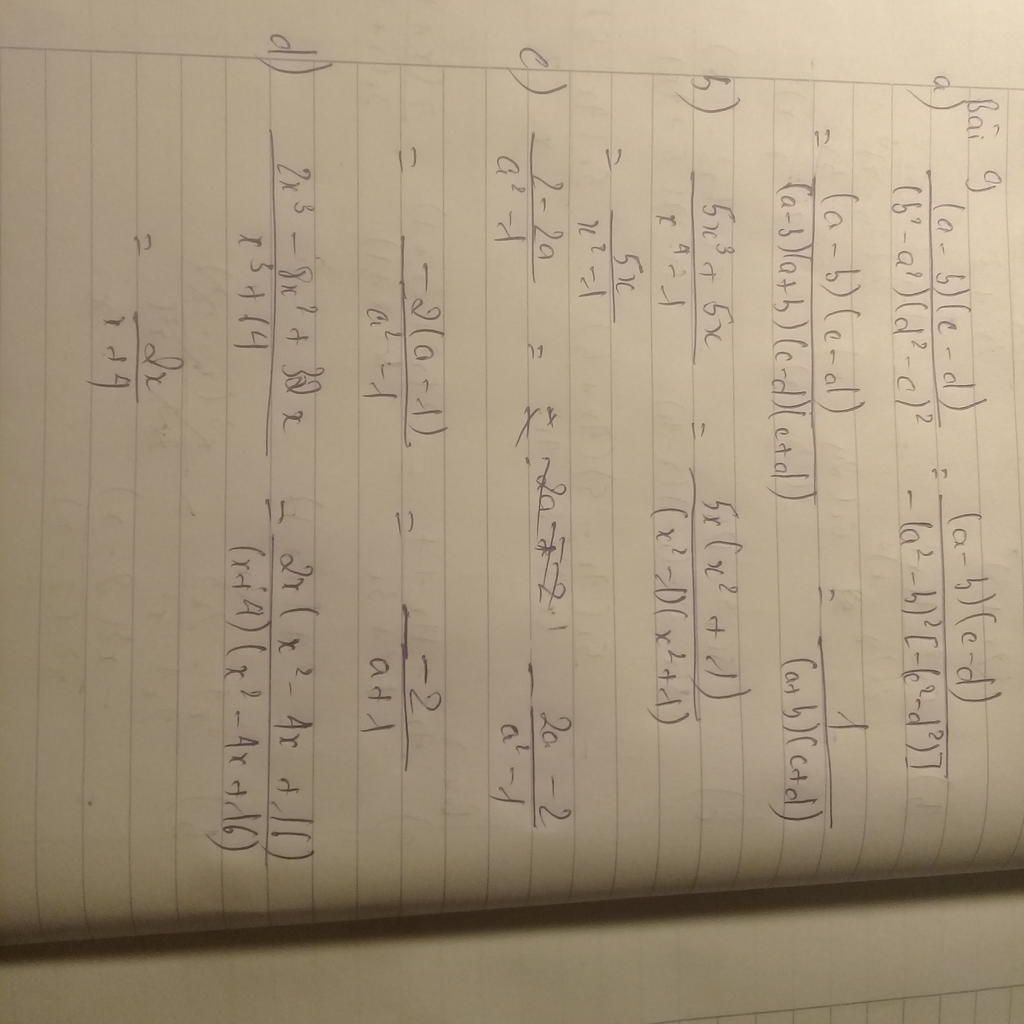 Bài 9
a) (a-b)(c-d) / (b²-a²)(d²-c)² = (a-b)(c-d) / -(a²-b)²[-(c²-d²)]
= (a-b)(c-d) / (a-b)(a+b)(c-d)(c+d) = 1 / (a+b)(c+d)
b) 5x³+5x / x⁴-1 = 5x(x²+1) / (x²-1)(x²+1)
= 5x / x²-1
c) 2-2a / a²-1 = - 2a-2 / a²-1
= -2(a-1) / a²-1 = -2 / a+1
d) 2x³-8x²+32x / x³+64 = 2x(x²-4x+16) / (x+4)(x²-4x+16)
= 2x / x+4